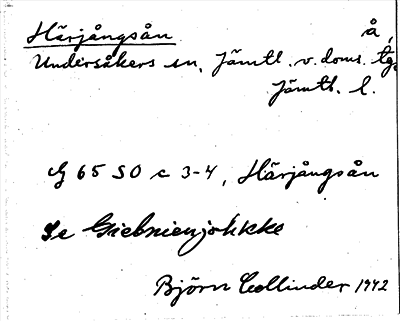 Härjångsån å,
Undersåkers sn, Jämtl. v. doms. tg.
Jämtl. l.
G 65 SO c 3-4, Härjångsån
Se Giebnienjohkke
Björn Collinder 1942